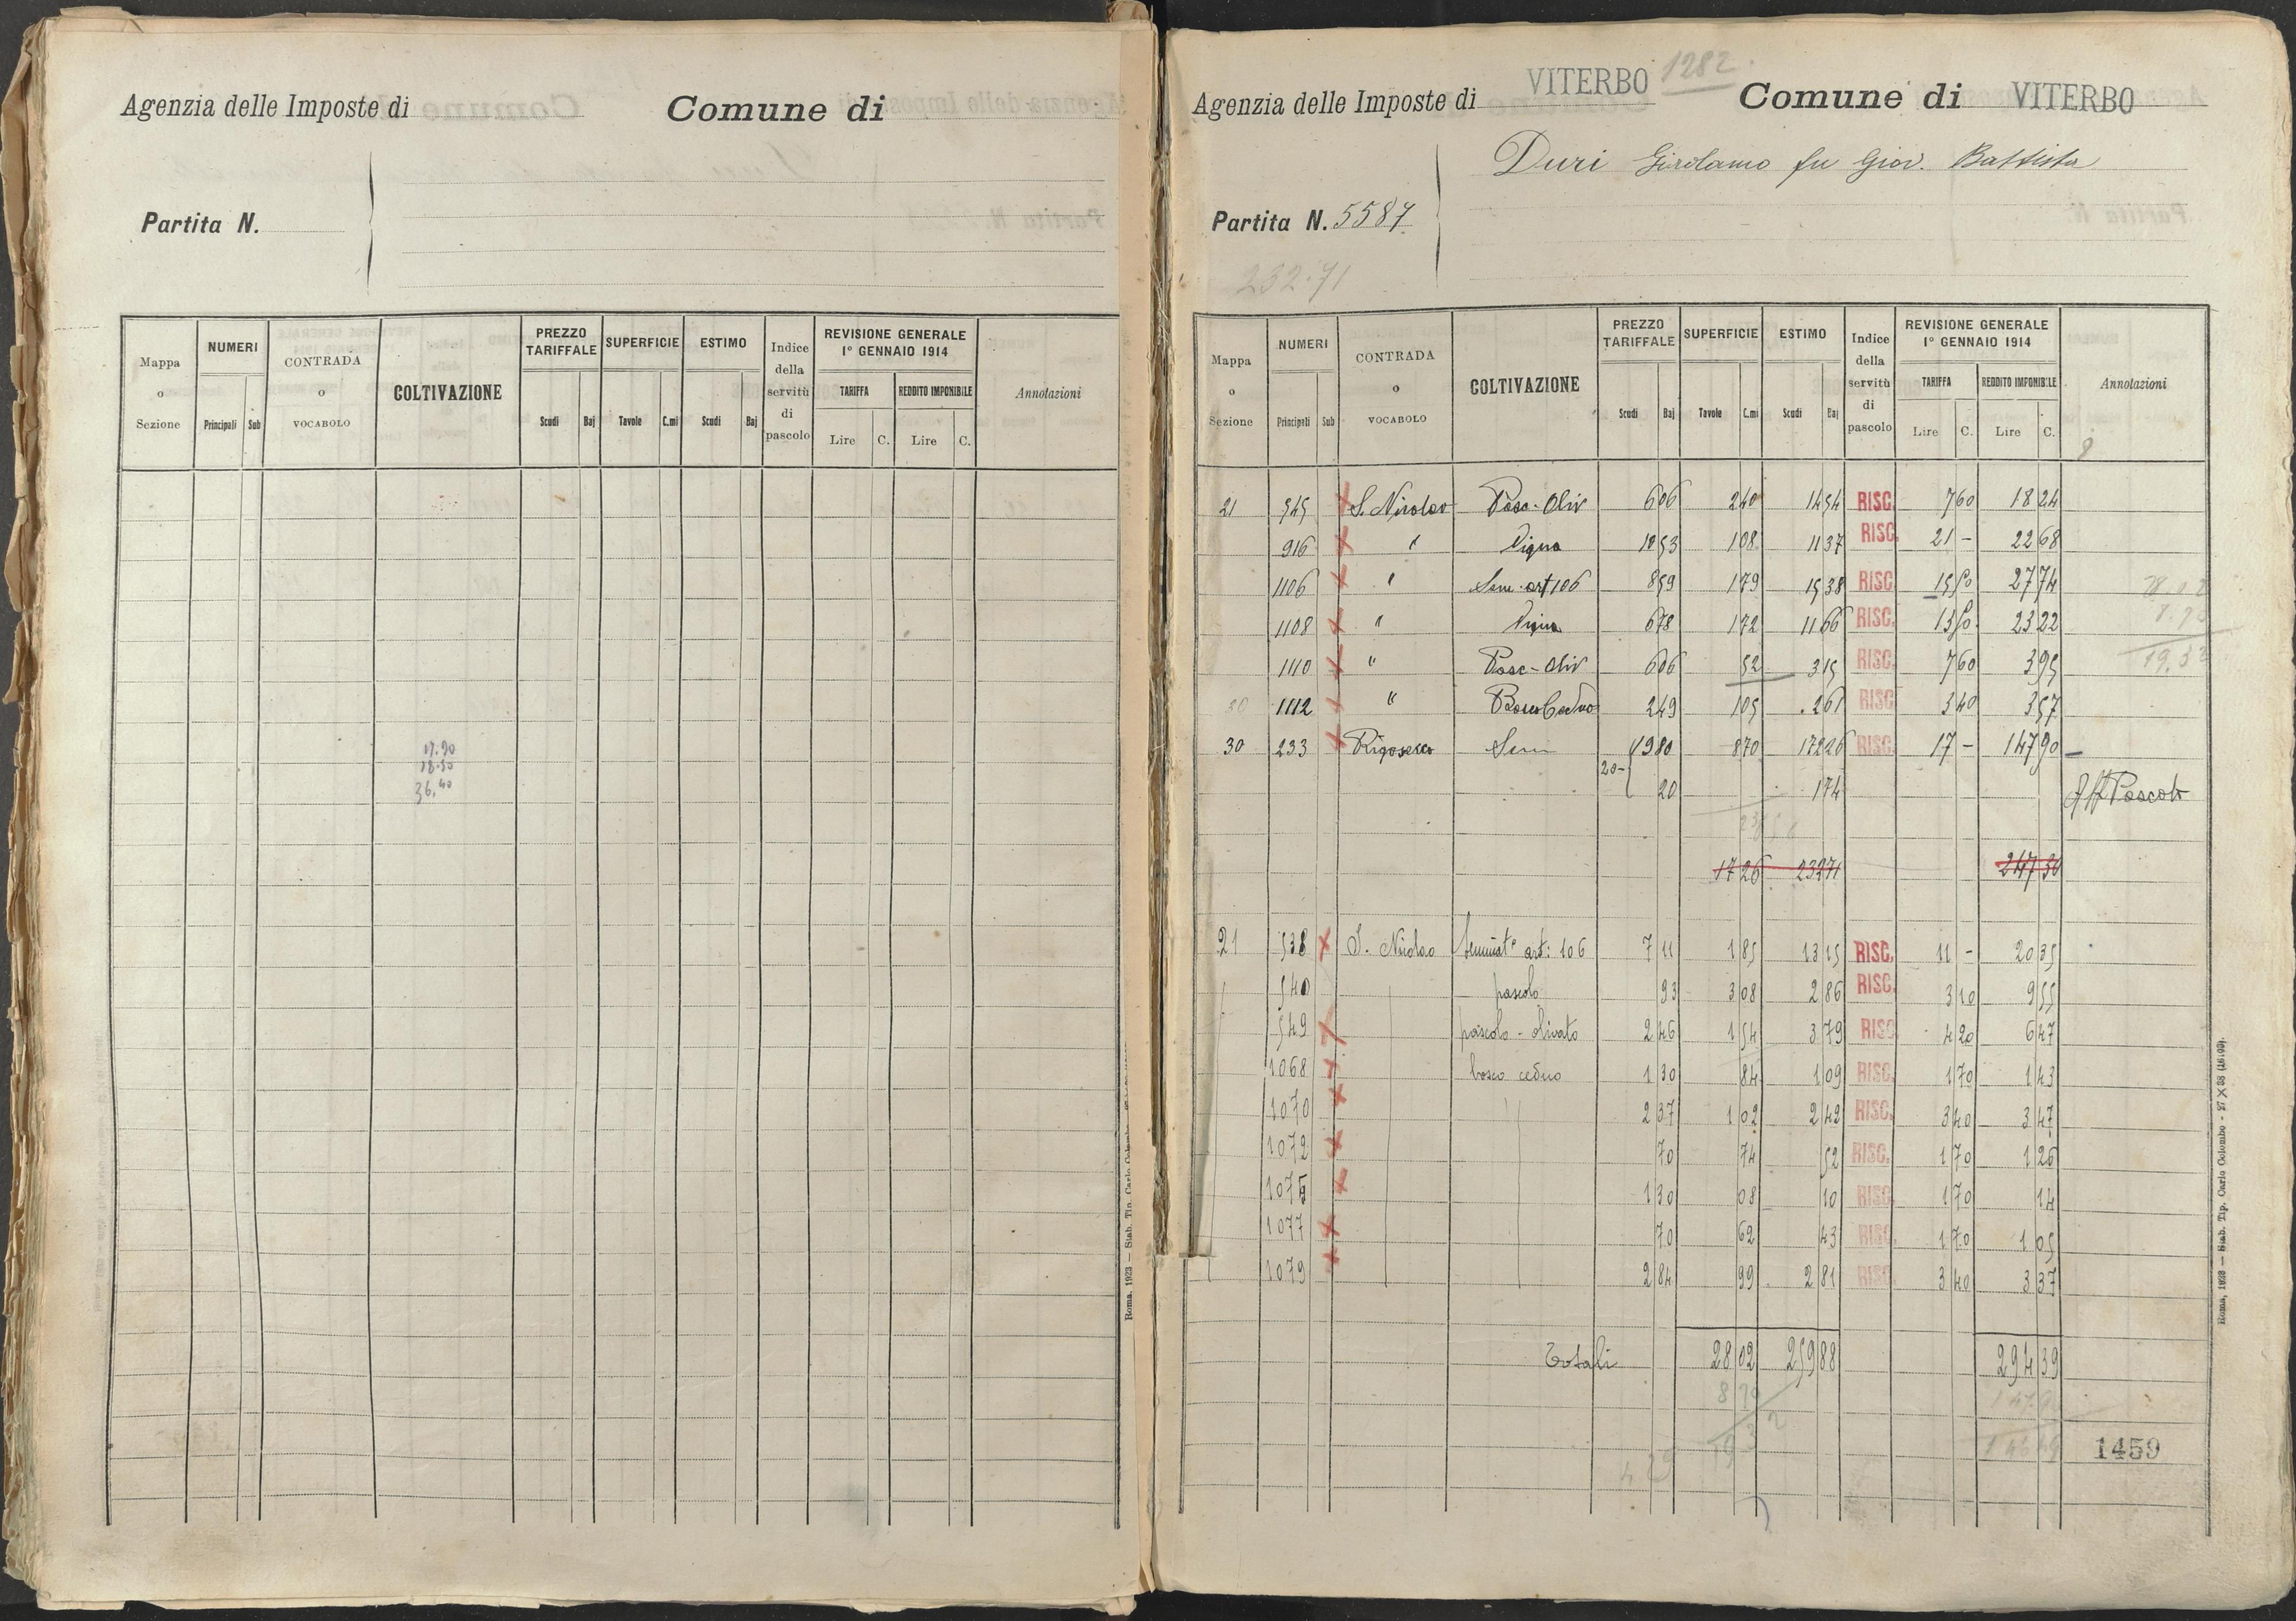 Agenzia delle Imposte di
Comune di
Partita N.
Mappa o Sezione | NUMERI Principali Sub | CONTRADA o VOCABOLO | COLTIVAZIONE | PREZZO TARIFFALE Scudi Baj | SUPERFICIE Tavole C.mi | ESTIMO Scudi Baj | Indice della servitù di pascolo | REVISIONE GENERALE 1° GENNAIO 1914 TARIFFA Lire C. REDDITO IMPONIBILE Lire C. | Annotazioni
17.90
18.50
36,40
Roma, 1923 — Stab. Tip. Carlo Colombo
Agenzia delle Imposte di VITERBO 1282
Comune di VITERBO
Duri Girolamo fu Giov. Battista
Partita N. 5587
232.71
Mappa o Sezione | NUMERI Principali Sub | CONTRADA o VOCABOLO | COLTIVAZIONE | PREZZO TARIFFALE Scudi Baj | SUPERFICIE Tavole C.mi | ESTIMO Scudi Baj | Indice della servitù di pascolo | REVISIONE GENERALE 1° GENNAIO 1914 TARIFFA Lire C. REDDITO IMPONIBILE Lire C. | Annotazioni
21 545 S. Nicolao Pasc-Oliv 6 06 2 40 14 54 RISC. 7 60 18 24
916 " Vigna 10 53 1 08 11 37 RISC. 21 - 22 68
1106 " Sem. art 106 8 59 1 79 15 38 RISC. 15 50 27 74
1108 " Vigna 6 78 1 72 11 66 RISC. 13 50 23 22
1110 " Pasc-Oliv 6 06 52 3 15 RISC. 7 60 3 95
30 1112 " Bosco Ceduo 2 49 1 05 2 61 RISC. 3 40 3 57
30 233 Rigosecco Sem 19 80 8 70 172 26 RISC. 17 - 147 90
20- 20 1 74 Aff Pascolo
17 26 232 71 247 30
21 538 S. Nicolao Seminat° art: 106 7 11 1 85 13 15 RISC. 11 - 20 35
540 pascolo 93 3 08 2 86 RISC. 3 10 9 55
549 pascolo - olivato 2 46 1 54 3 79 RISC. 4 20 6 47
1068 bosco ceduo 1 30 84 1 09 RISC. 1 70 1 43
1070 2 37 1 02 2 42 RISC. 3 40 3 47
1072 70 74 52 RISC. 1 70 1 26
1075 1 30 08 10 RISC. 1 70 14
1077 70 62 43 RISC. 1 70 1 05
1079 2 84 99 2 81 RISC. 3 40 3 37
Totali 28 02 259 88 294 39
8 70
19 32
1459
Roma, 1923 — Stab. Tip. Carlo Colombo - 27 X 38